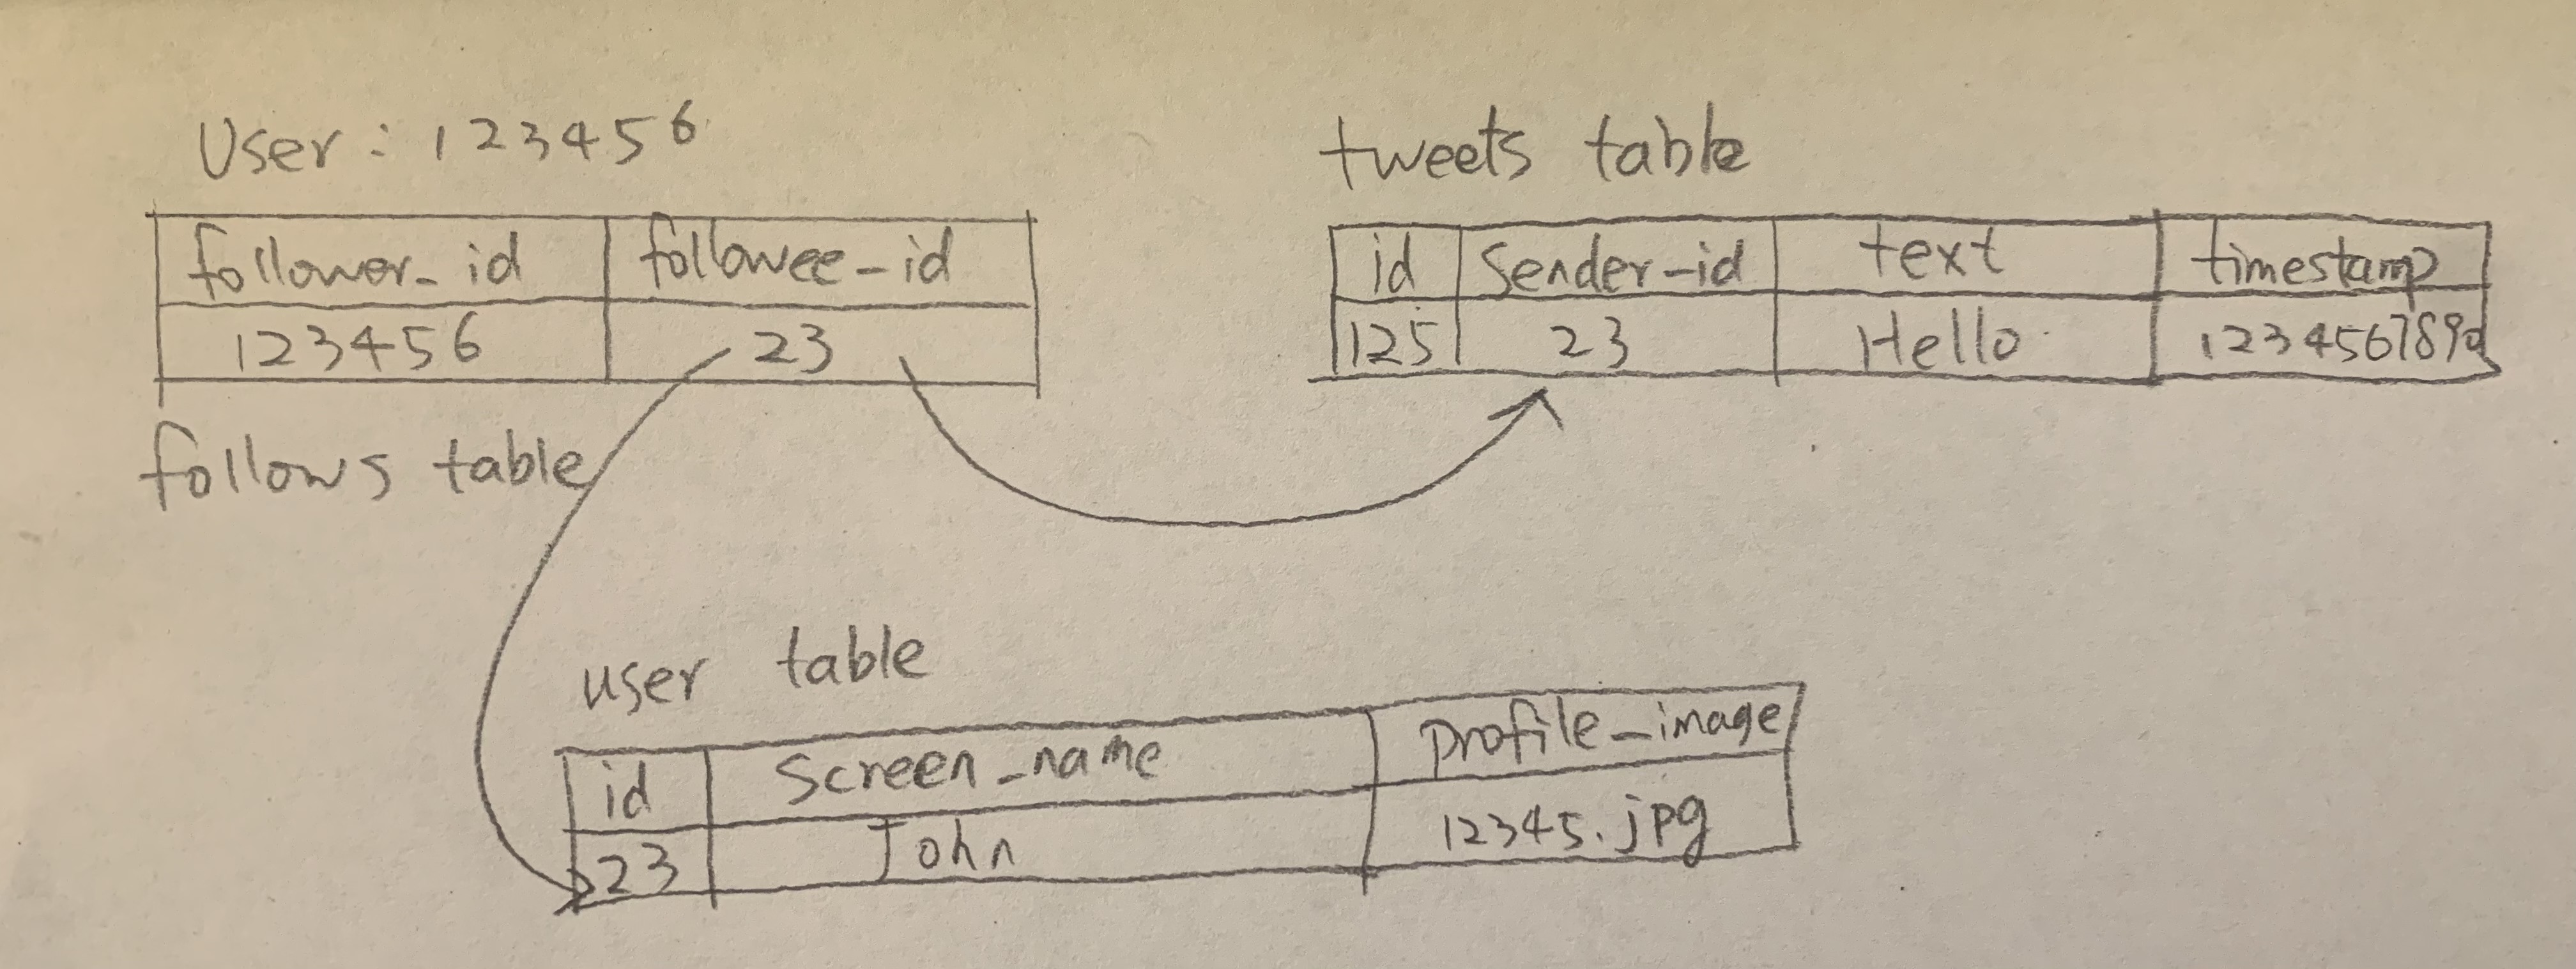 User : 123456
follower_id followee-id
123456 23
follows table
tweets table
id Sender-id text timestamp
125 23 Hello 1234567890
user table
id Screen_name Profile_image
23 John 12345.jpg